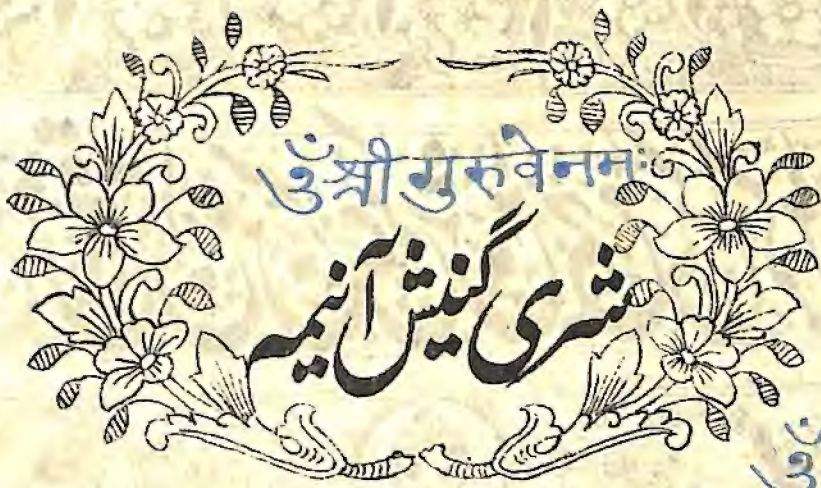 ॐ श्री गुरुवेनमः
شری گنیش آنیمہ
ॐ